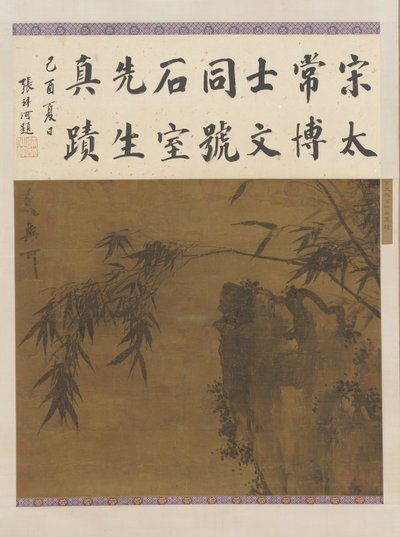 宋太
常博
士文
同號
石室
先生
真蹟
己酉夏日
張祥河題
與可